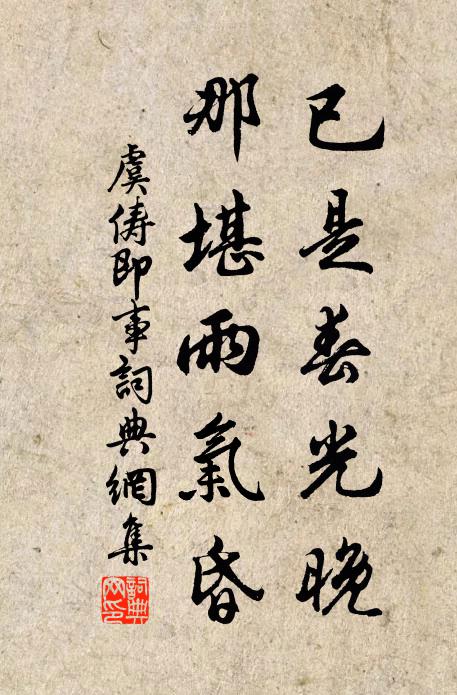 已是春光晚
那堪雨氣昏
虞儔即事詞典網集
詞典網印